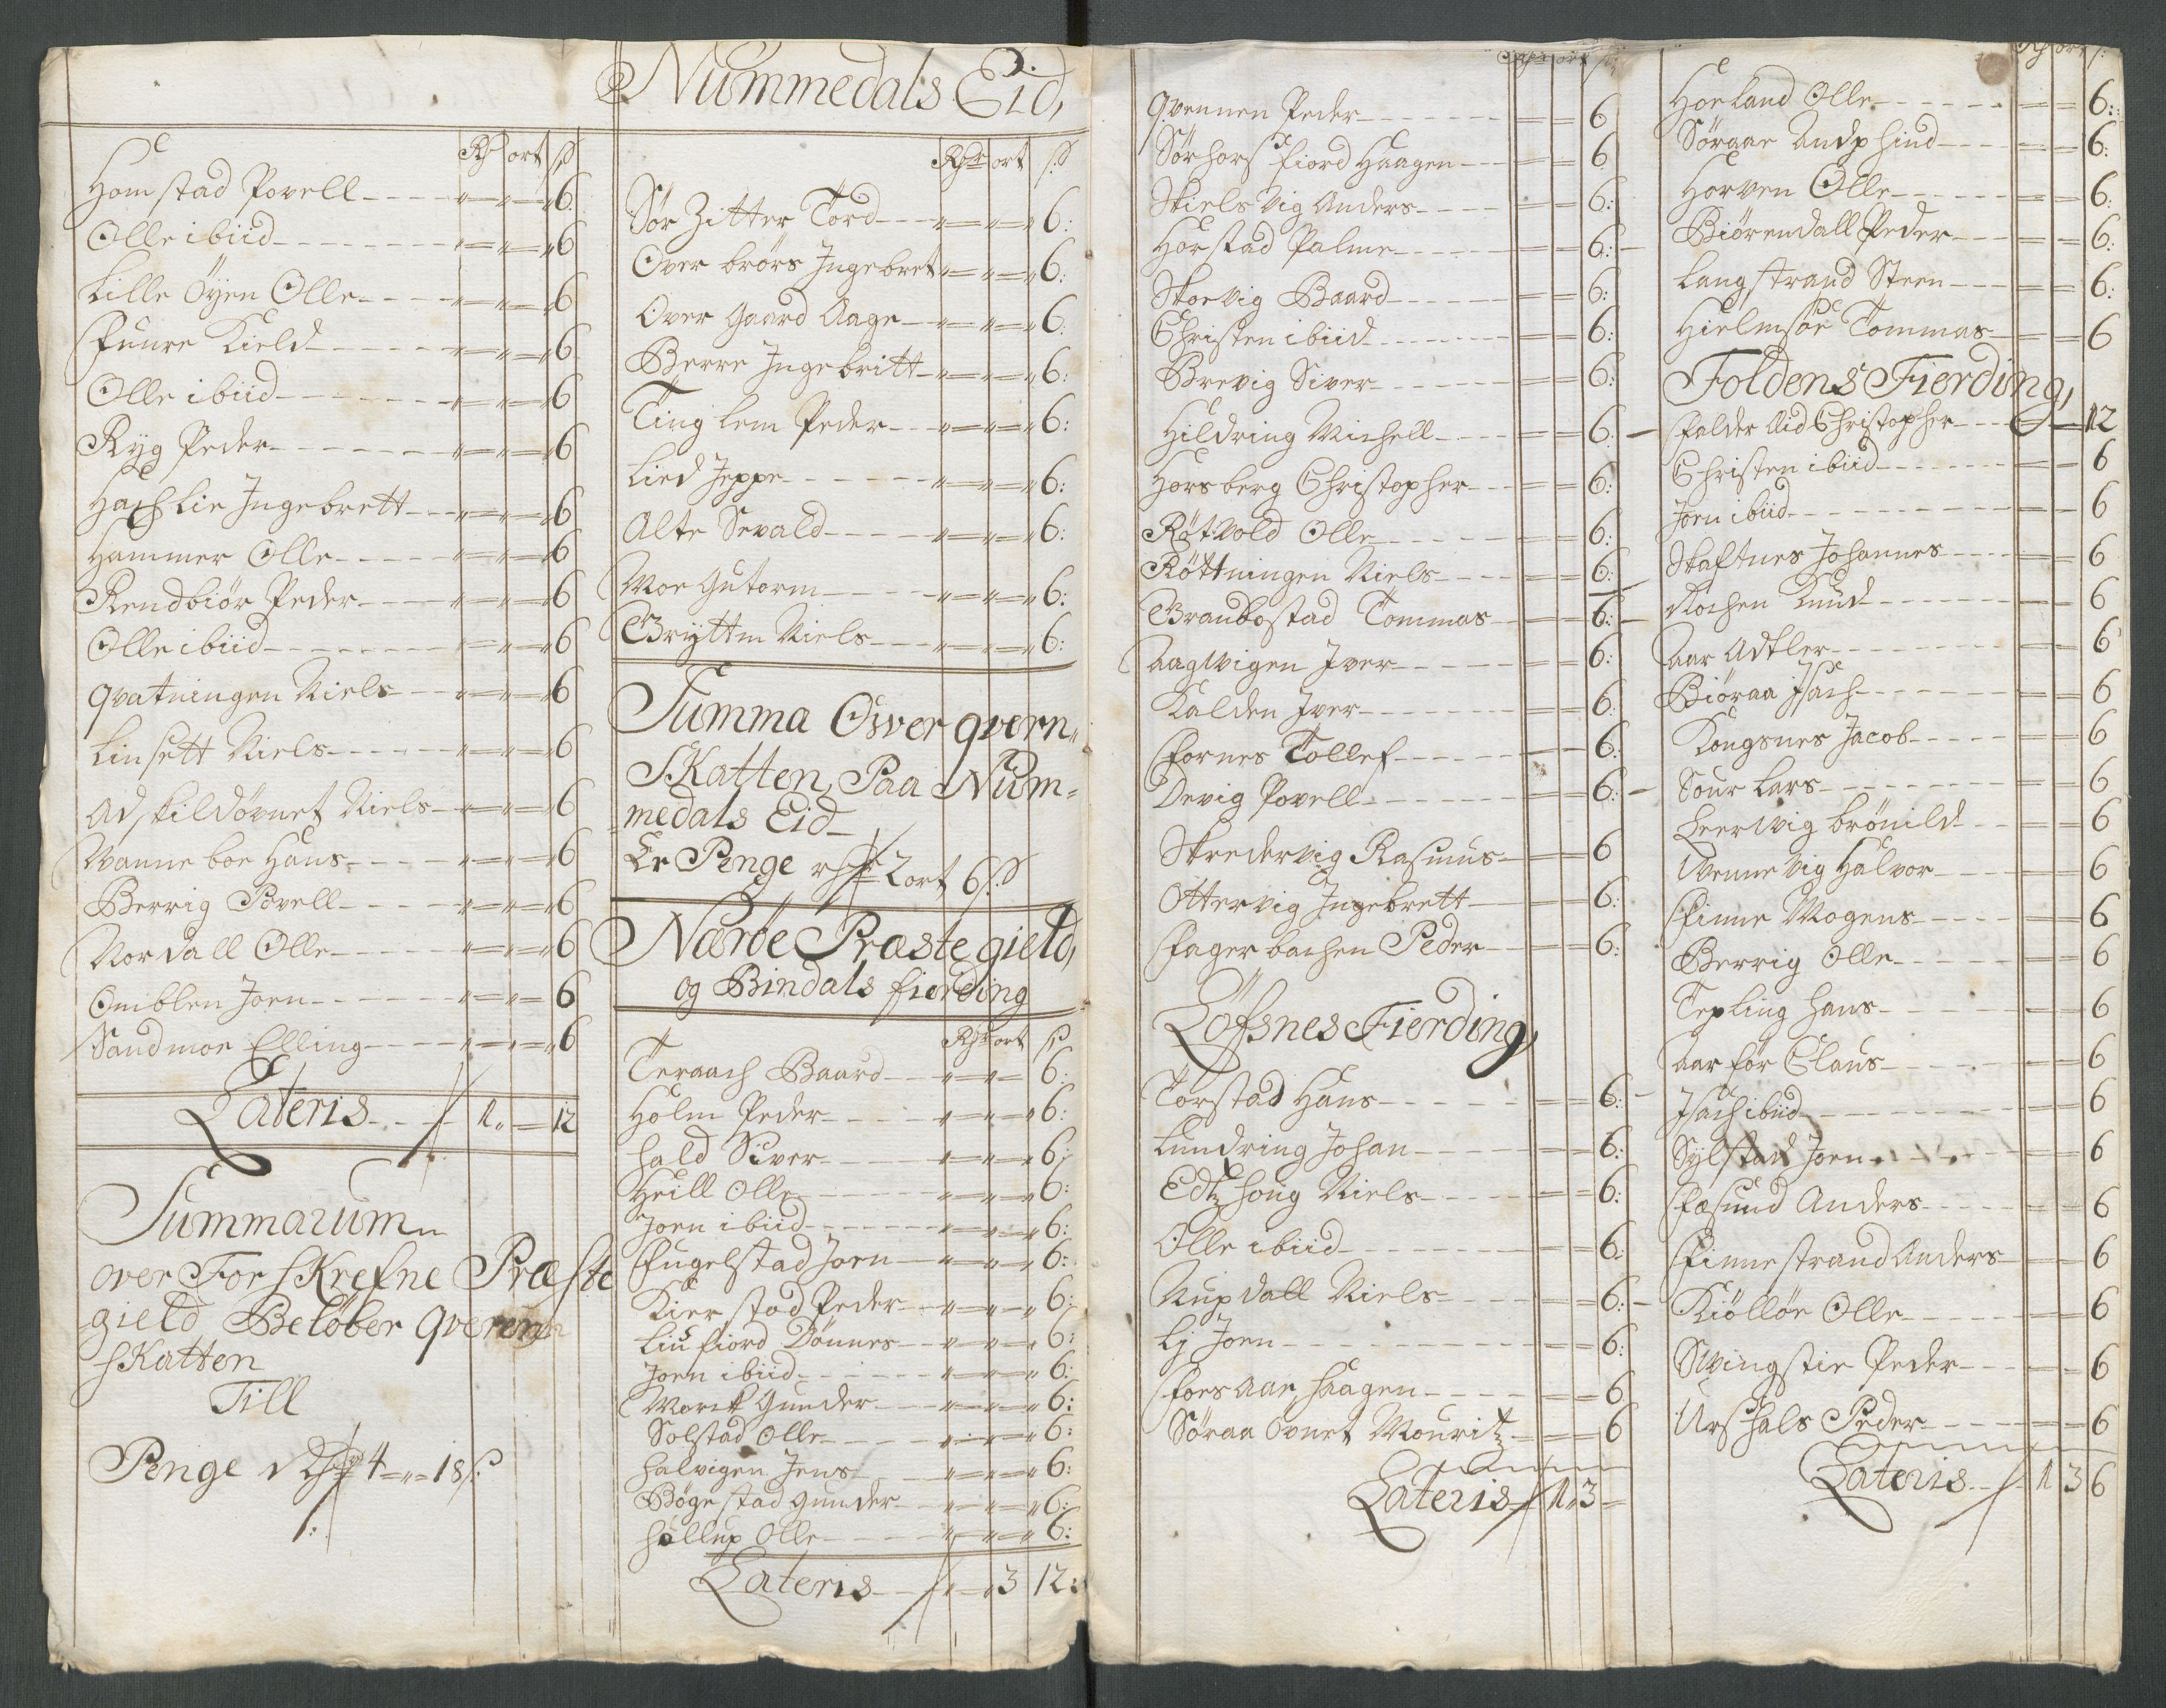 Rd ort ß
Homstad Povell - - - 6
Olle ibiid - - - 6
Lille Öyen Olle - - - 6
Fuure Kield - - - 6
Olle ibiid - - - 6
Ryg Peder - - - 6
Hach lie Ingebrett - - - 6
Hammer Olle - - - 6
Rendbiör Peder - - - 6
Olle ibiid - - - 6
qvatningen Niels - - - 6
Linsett Niels - - - 6
Adskildövnet Niels - - - 6
Wanneboe Hans - - - 6
Berrig Povell - - - 6
Nordall Olle - - - 6
Omblen Joen - - - 6
Sandmoe Elling - - - 6
Lateris - - 1 „ 12
Summarum
over ForsKrefne Præste
gield Beløber qveren
sKatten
Till
Penge 4 - „ - 18 ß
Nummedals Eid,
Rdr ort ß
Sör Zitter Tord - - - 6:
Over brörs Ingebret 6:
Over Gaard Aage - 6:
Berre Ingebritt - 6:
Ting lem Peder - - 6:
Lied Jeppe - - - 6:
Alte Sevald - - - 6:
Moe Gutorm - - - 6:
Gryttm Niels - - - 6:
Summa Over qvern„
SKatten, Paa Num=
medals Eid -
Er Penge 2 ort 6 ß
Næröe Præste gield,
og Bindals fierding
Rdr ort ß
Teraach Baard - - 6:
Holm Peder - - - 6:
Hald Siver - - - 6:
Heill Olle - - - 6:
Joen ibiid - - - 6:
Fugelstad Joen - - 6:
Kierstad Peder - - 6:
Liu fiord Dönnes - - 6:
Joen ibiid - - - 6:
Gunder - - - 6:
Solstad Olle - - - 6:
Halvigen Jens - - - 6:
Bögestad Gunder - - 6:
Hollup Olle - - - 6:
Lateris - - „ 3 12:
qvennen Peder - - - 6
Sörhorsfiord Haagen - - 6
Skiels Vig Anders - - - 6:
Horstad Palme - - - 6: -
Skoevig Baard - - - 6:
Christen ibiid - - - 6:
Brevig Siver - - - 6:
Hildring Michell - - - 6: -
Horsberg Christopher - - 6:
Rötvold Olle - - - 6:
Röttningen Niels - - - 6:
Graubostad Tommas - 6: -
Aagwigen Iver - - - 6:
Kalden Iver - - - 6:
Fornes Tollef - - - 6:
Devig Povell - - - 6: -
Skredervig Rasmus - 6
Ottervig Ingebrett - 6:
Fagerbachen Peder - 6:
Löfsnes Fierding,
Torstad Hans - - - 6: -
Lundring Johan - - - 6:
Niels - - - 6:
Olle ibiid - - - 6:
Nupdall Niels - - - 6: -
Lj Joen - - - 6:
Foes Aar, Haagen - - - 6
Söraa Ovnet Mouritz - 6
Lateris 1 „ 3 =
Rd ort ß:
Horland Olle - - - 6:
Söraae Andphind - - - 6:
Horven Olle - - - 6:
Biörendall Peder - - - 6:
Langstrand Steen - - 6:
Hielmsöe Tommas - 6
Foldens Fierding,
Falder Aid Christopher - - 12
Christen ibiid - - - 6
Joen ibiid - - - 6
Skaftnes Johannes - - - 6
Kochen Knud - - - 6
Aar Adtler - - - 6
Biöraa Isach - - - 6
Kongsnes Jacob - - - 6
Sour Lars - - - 6
Leerwig brönild - - 6
Wenne Vig Halvor - - 6
Finne Mogens - - - 6
Berrig Olle - - - 6
Tepling Hans - - - 6
Aarför Claus - - - 6
Isach ibiid - - - 6
Sylstad Joen - - - 6
Fæsund Anders - - - 6
Finnestrand Anders - 6
Kiöllöe Olle - - - 6
Svingstie Peder - - - 6
Urshals Peder - - - 6
Lateris - - 1 3 6